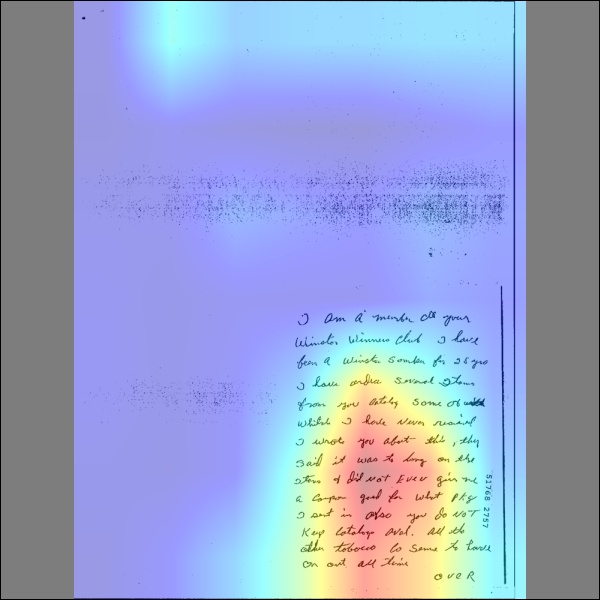 I am a member of your
Winston Winners Club I have
been a Winston Somker for 25 yrs
I have ordea Several Items
from you catolog Some of
which I have Never received
I wrote you about this, they
Said it was to long on the
Items I did NOT EVEN give me
a Coupon good for what pkg
I sent in also you do NOT
Keep Catalogs aval. all the
other tobacco Co Seme to have
on out all time
OVER
51768 2757